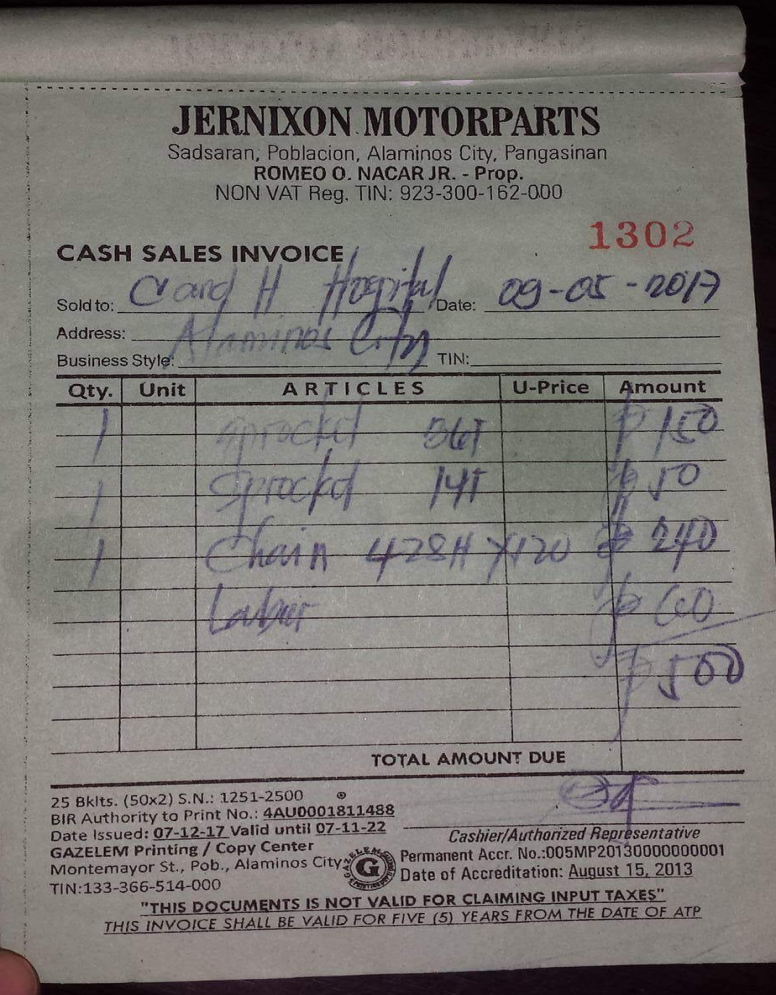 JERNIXON MOTORPARTS
Sadsaran, Poblacion, Alaminos City, Pangasinan
ROMEO O. NACAR JR. - Prop.
NON VAT Reg. TIN: 923-300-162-000
1302
CASH SALES INVOICE
Sold to: H Hospital Date: 09-05-2017
Address: Alaminos City
Business Style: TIN:
Qty. Unit ARTICLES U-Price Amount
1 Sprocket 36T ₱ 150
1 Sprocket 14T ₱ 50
1 Chain 428H X120 ₱ 240
Labor ₱ 60
₱ 500
TOTAL AMOUNT DUE
25 Bklts. (50x2) S.N.: 1251-2500
BIR Authority to Print No.: 4AU0001811488
Date Issued: 07-12-17 Valid until 07-11-22
GAZELEM Printing / Copy Center
Montemayor St., Pob., Alaminos City
TIN:133-366-514-000
G
Cashier/Authorized Representative
Permanent Accr. No.:005MP20130000000001
Date of Accreditation: August 15, 2013
"THIS DOCUMENTS IS NOT VALID FOR CLAIMING INPUT TAXES"
THIS INVOICE SHALL BE VALID FOR FIVE (5) YEARS FROM THE DATE OF ATP